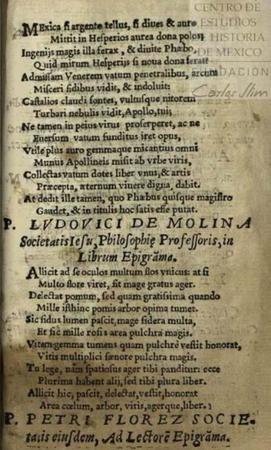 CENTRO DE
ESTUDIOS
DE HISTORIA
DE MEXICO
FUNDACIÓN
Carlos Slim
MExica si argente tellus, si diues & auro
Mittit in Hesperios aurea dona polos;
Ingenijs magis illa ferax, & diuite Phœbo,
Quid mirum Hesperijs si noua dona ferat
Admissam Venerem vatum penetralibus, arcum
Misceri fidibus vidit, & indoluit:
Castalios claudi fontes, vultusque nitorem
Turbari nebulis vidit, Apollo, tui;
Ne tamen in peius virus proserperet, ac ne
Euersum vatum funditus iret opus,
Vtile plus auro gemmaque micantius omni
Munus Apollineis misit ab vrbe viris,
Collectas vatum dotes liber vnus, & artis
Præcepta, æternum viuere digna, dabit.
At dedit ille tamen, quo Phœbus quisque magistro
Gaudet, & in titulis hoc satis esse putat.
P. LVDOVICI DE MOLINA
Societatis Iesu, Philosophię Professoris, in
Librum Epigrāma.
Allicit ad se oculos multum flos vnicus: at si
Multo flore viret, sit mage gratus ager.
Delectat pomum, sed quam gratissima quando
Mille isthinc pomis arbor opima tumet.
Sic sidus lumen pascit, mage sidera multa,
Et sic mille rosis area pulchrā magis.
Vitem gemma tumens quam pulchre vestit honorat,
Vitis multiplici fœnore pulchra magis.
Tu lege, nam spatiosus ager tibi panditur: ecce
Plurima habent alij, sed tibi plura liber.
Allicit hic, pascit, delectat, vestit, honorat
Area cœlum, arbor, vitis, agerque, liber.
P. PETRI FLOREZ SOCIE-
tatis eiusdem, Ad Lectorē Epigrāma.